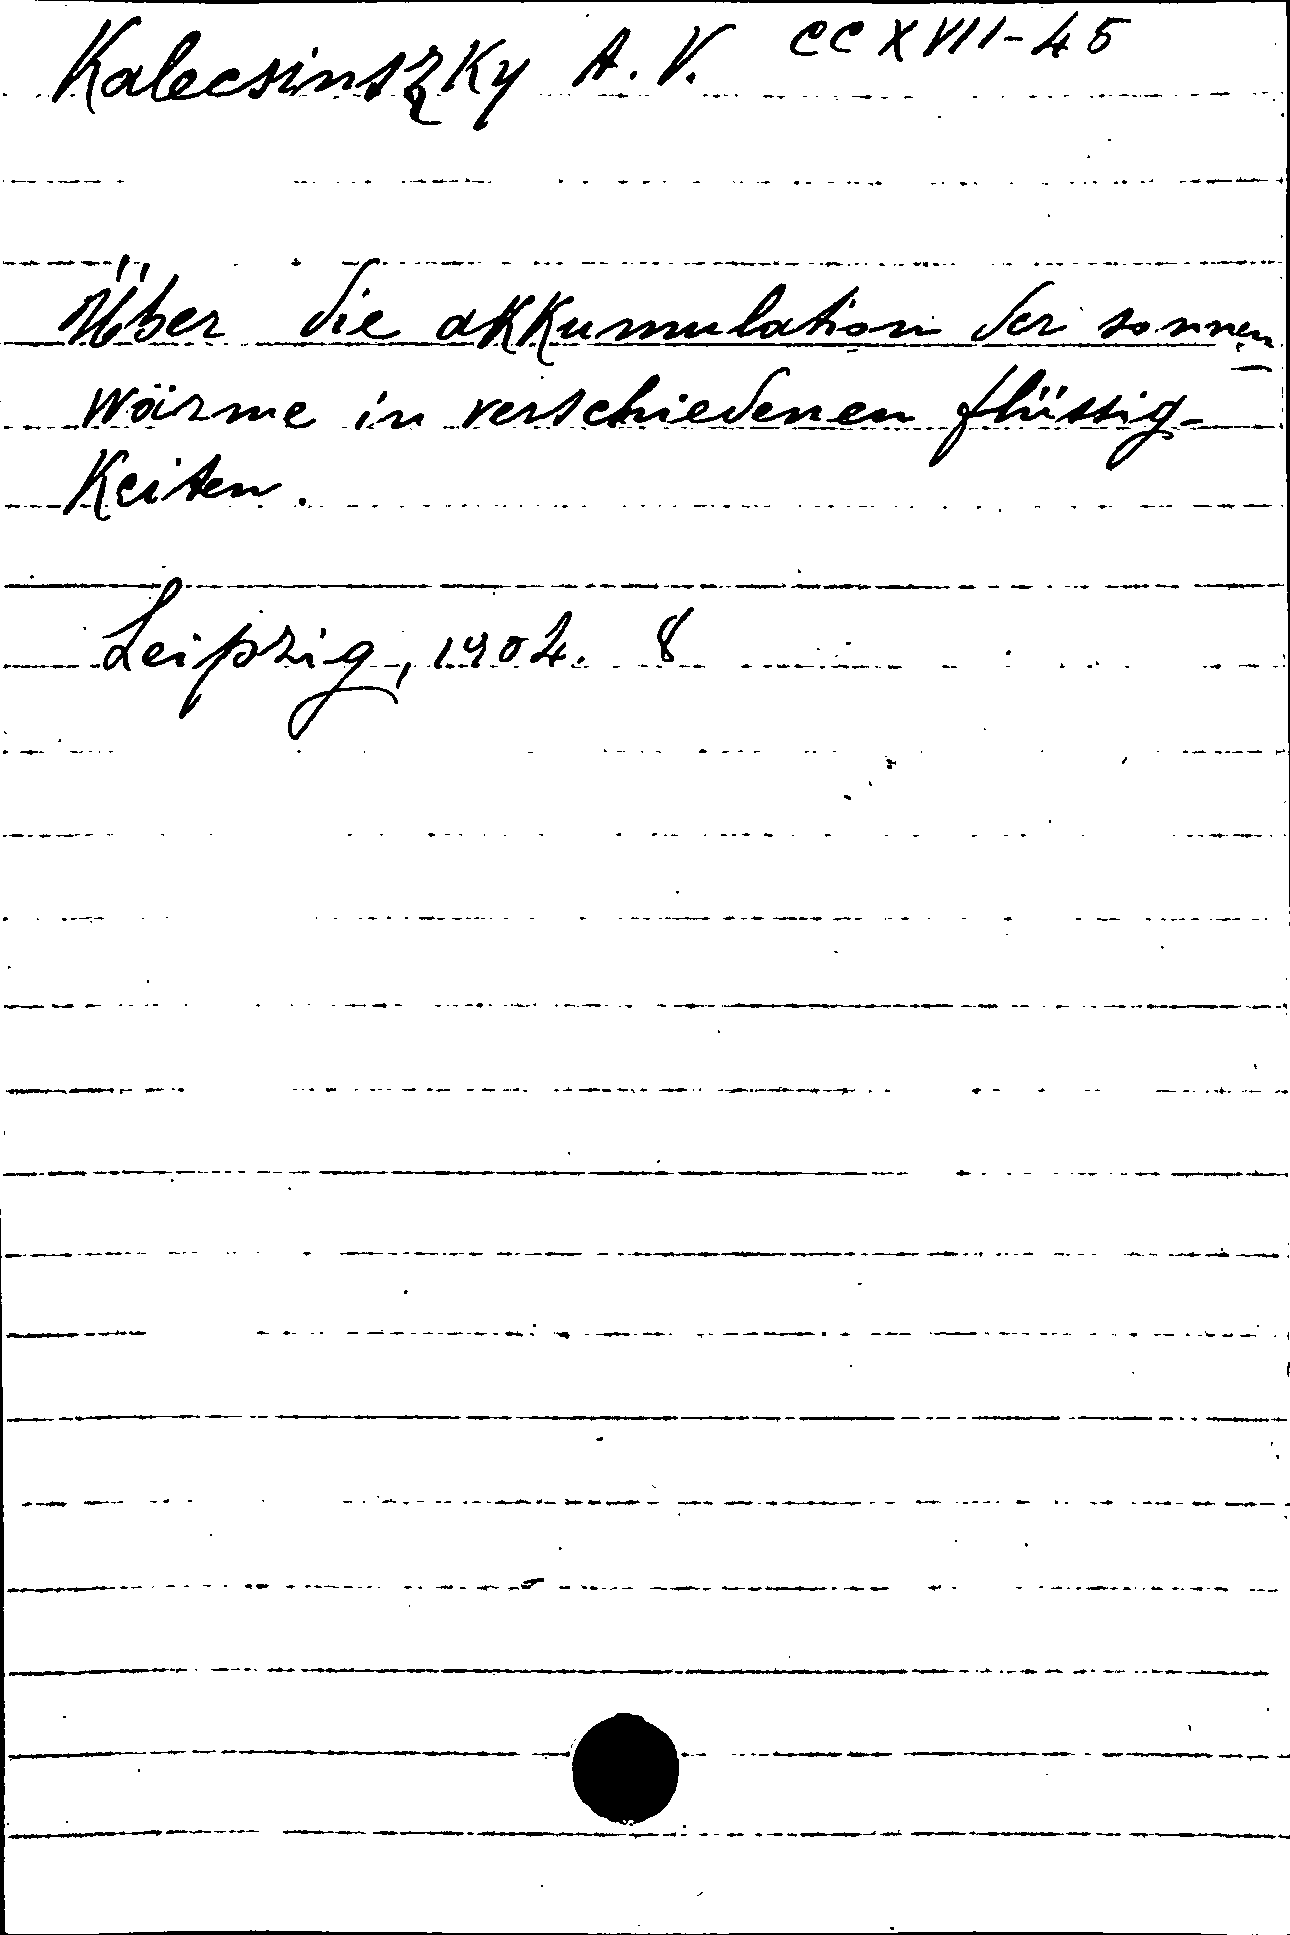 Kalecsinszky A. V. CCXVII-45
Über die akkumulation der sonnen
wärme in verschiedenen flüssig-
keiten.
Leipzig, 1904. 8